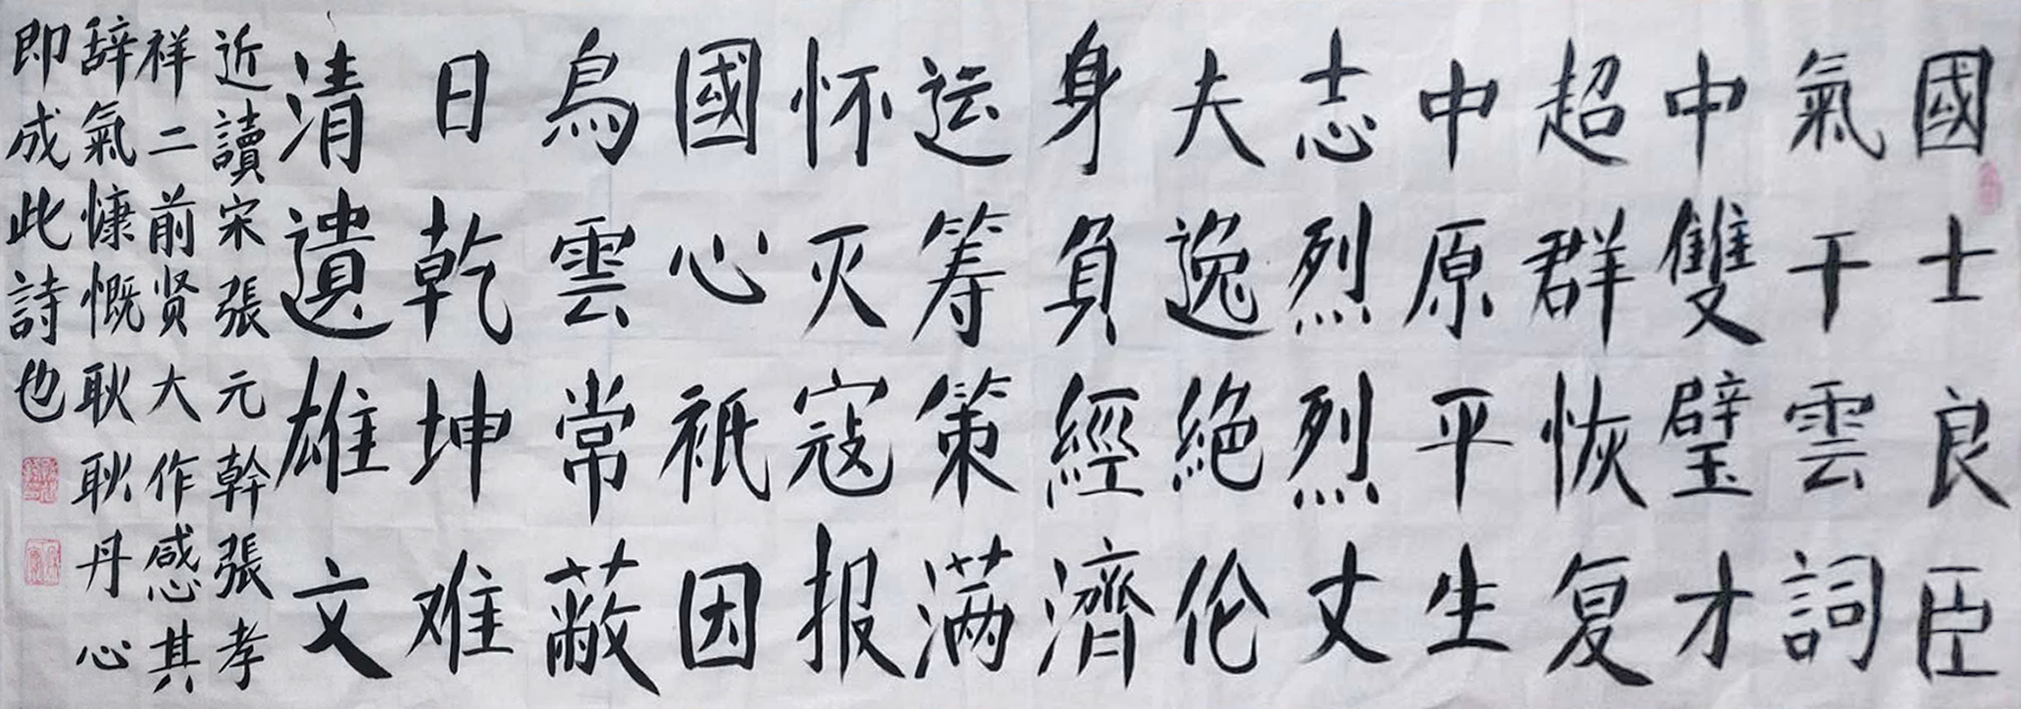 國士良臣
氣干雲詞
中雙璧才
超群恢复
中原平生
志烈烈丈
夫逸絶伦
身負經濟
运筹策满
怀灭寇报
國心祇因
鳥雲常蔽
日乾坤难
清遺雄文
近讀宋張元幹張孝
祥二前贤大作感其
辞氣慷慨耿耿丹心
即成此詩也